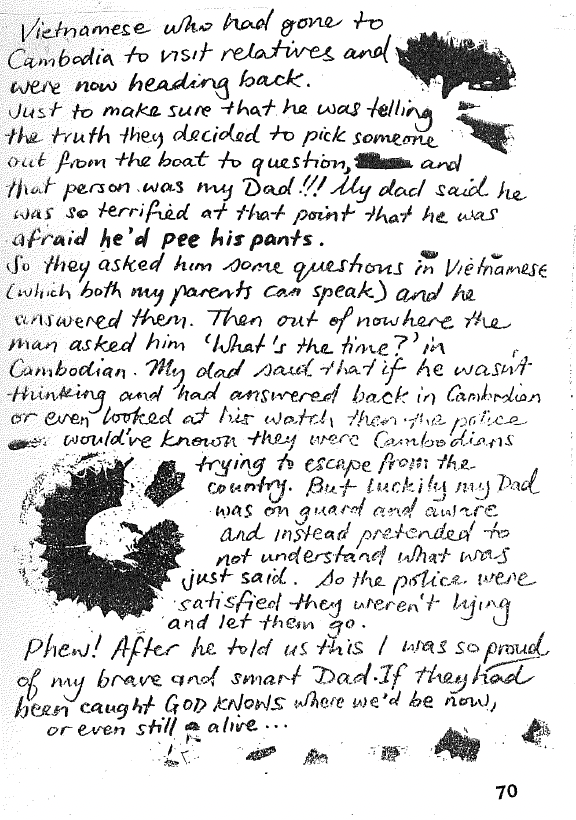 Vietnamese who had gone to
Cambodia to visit relatives and
were now heading back.
Just to make sure that he was telling
the truth they decided to pick someone
out from the boat to question, and
that person was my Dad!!! My dad said he
was so terrified at that point that he was
afraid he'd pee his pants.
So they asked him some questions in Vietnamese
(which both my parents can speak) and he
answered them. Then out of nowhere the
man asked him 'What's the time?' in
Cambodian. My dad said that if he wasn't
thinking and had answered back in Cambodian
or even looked at his watch then the police
would've known they were Cambodians
trying to escape from the
country. But luckily my Dad
was on guard and aware
and instead pretended to
not understand what was
just said. So the police were
satisfied they weren't lying
and let them go.
Phew! After he told us this I was so proud
of my brave and smart Dad. If they had
been caught GOD KNOWS where we'd be now,
or even still alive...
70